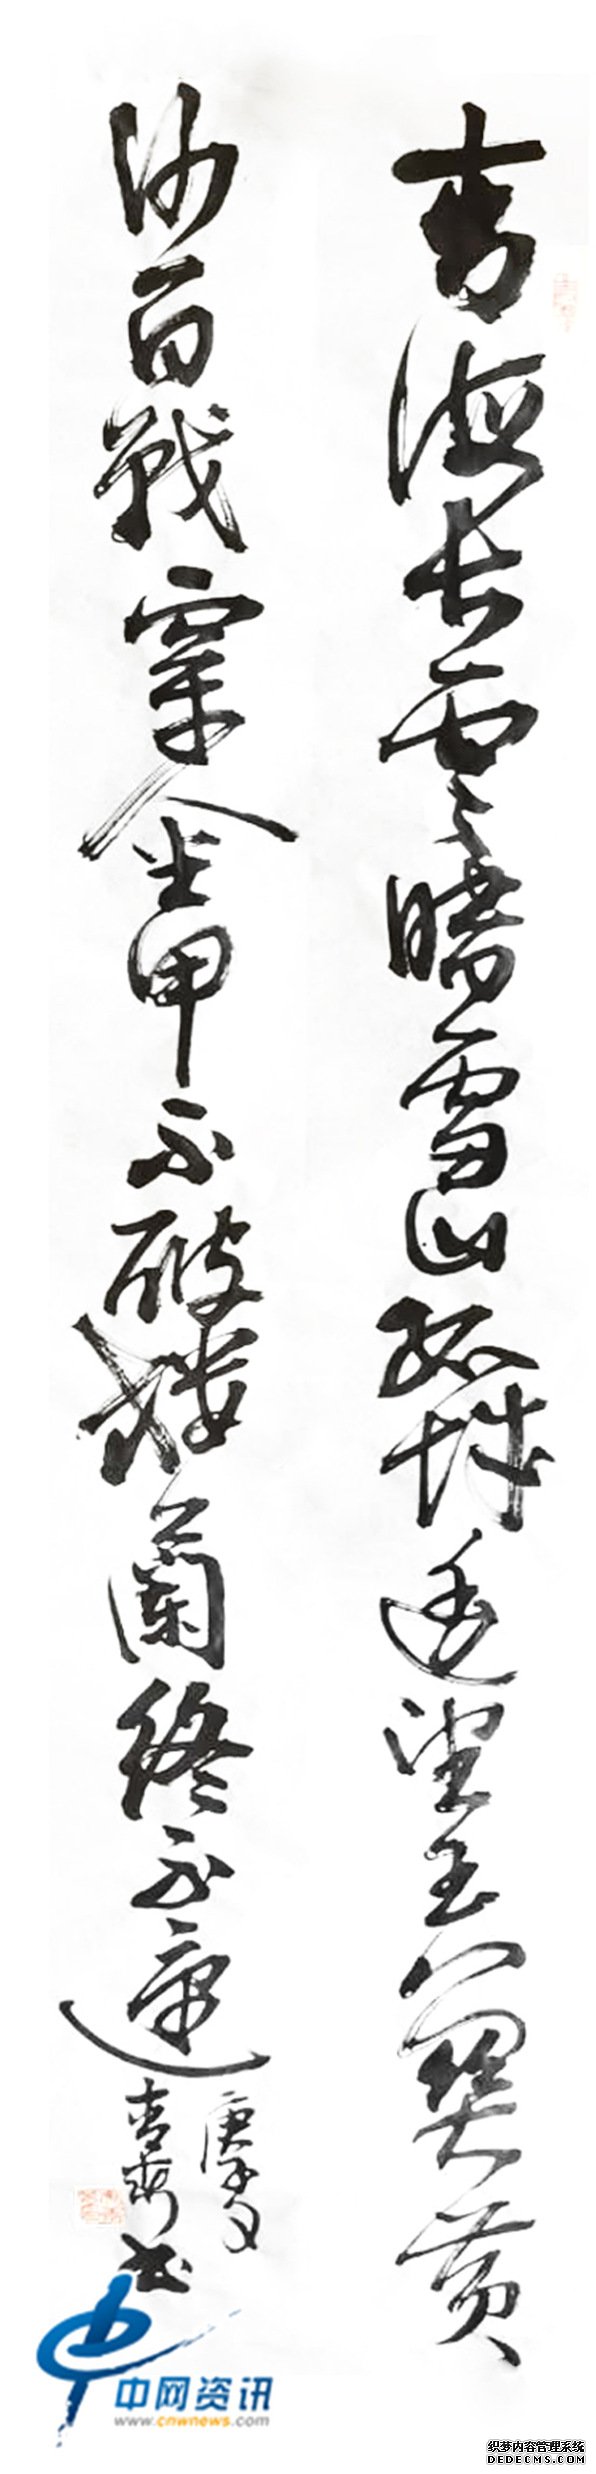 青海長雲暗雪山孤城遥望玉門關黄
沙百戰穿金甲不破樓蘭終不還
庚子
書
中网资讯
www.cnwnews.com
织梦内容管理系统
DEDECMS.COM